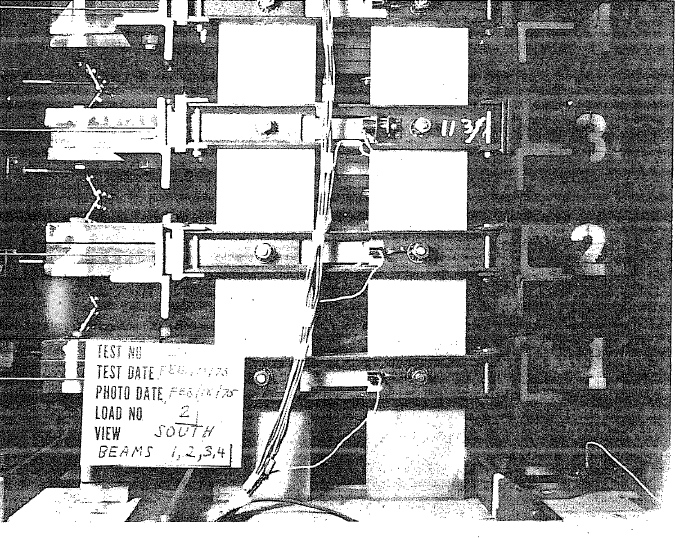 113/
3
2
1
TEST NO
TEST DATE FEB/ /75
PHOTO DATE FEB/ /75
LOAD NO 2
VIEW SOUTH
BEAMS 1,2,3,4